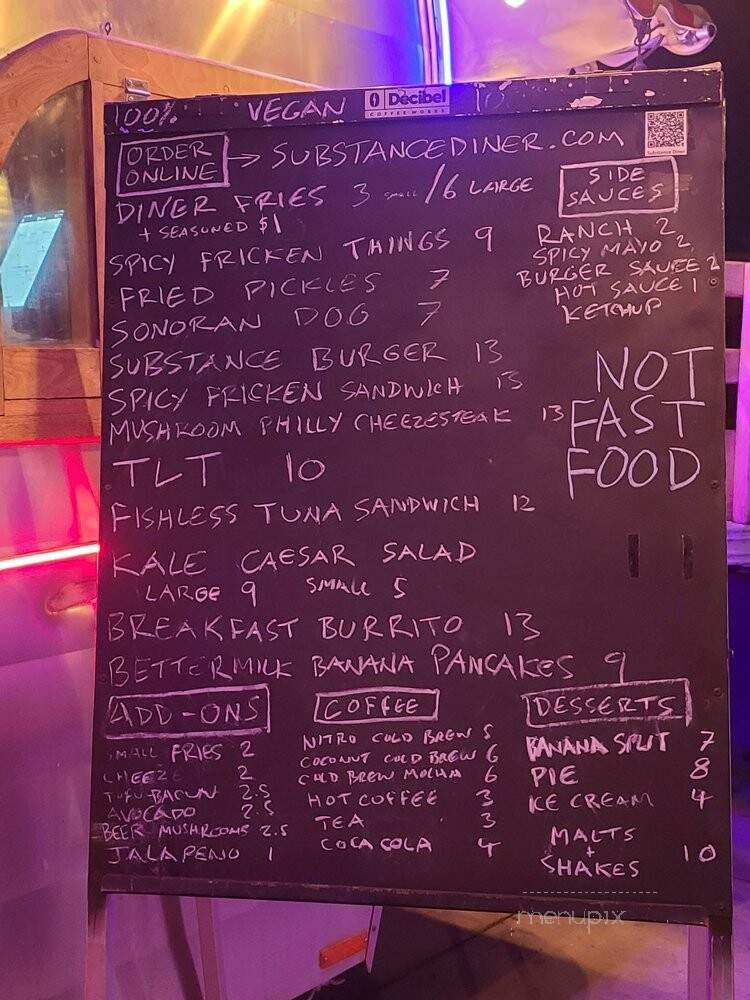 100% VEGAN
Decibel
COFFEEWORKS
ORDER ONLINE → SUBSTANCEDINER.COM
Substance Diner
DINER FRIES 3 SMALL / 6 LARGE
+ SEASONED $1
SPICY FRICKEN THINGS 9
FRIED PICKLES 7
SONORAN DOG 7
SUBSTANCE BURGER 13
SPICY FRICKEN SANDWICH 13
MUSHROOM PHILLY CHEEZESTEAK 13
TLT 10
FISHLESS TUNA SANDWICH 12
KALE CAESAR SALAD
LARGE 9 SMALL 5
BREAKFAST BURRITO 13
BETTERMILK BANANA PANCAKES 9
SIDE
SAUCES
RANCH 2
SPICY MAYO 2
BURGER SAUCE 2
HOT SAUCE 1
KETCHUP
NOT
FAST
FOOD
ADD-ONS
SMALL FRIES 2
CHEEZE 2
TOFU BACUN 2.5
AVOCADO 2.5
BEER MUSHROOMS 2.5
JALAPENO 1
COFFEE
NITRO COLD BREW 5
COCONUT COLD BREW 6
COLD BREW MOCHA 6
HOT COFFEE 3
TEA 3
COCA COLA 4
DESSERTS
BANANA SPLIT 7
PIE 8
ICE CREAM 4
MALTS
+
SHAKES 10
menupix